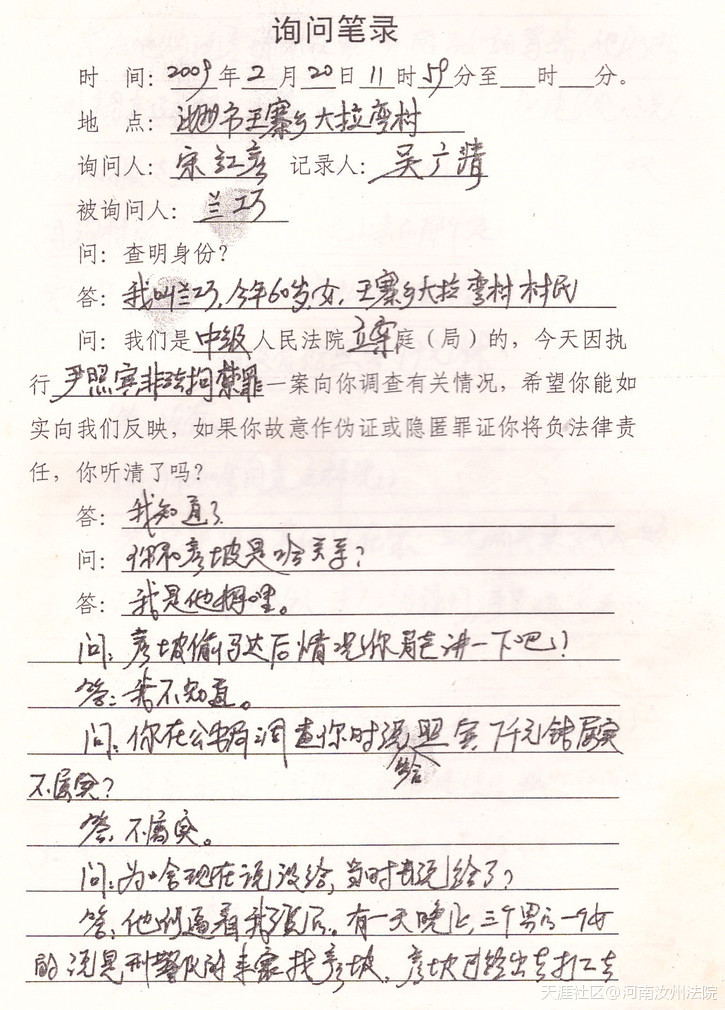 询问笔录
时 间：2009年2月20日11时59分至__时__分。
地 点：汝州市王寨乡大拉弯村
询问人：宋红彦 记录人：吴广清
被询问人：兰巧
问：查明身份？
答：我叫兰巧，今年60岁，女，王寨乡大拉弯村村民
问：我们是中级人民法院立案庭（局）的，今天因执
行尹照宾非法拘禁罪一案向你调查有关情况，希望你能如
实向我们反映，如果你故意作伪证或隐匿罪证你将负法律责
任，你听清了吗？
答：我知道了
问：你和彦坡是啥关系？
答：我是他娘哩。
问：彦坡偷马达后情况你讲一下吧？
答：我不知道。
问：你在公安局调查你时说给照宾 千元钱属实
不属实？
答：不属实。
问：为啥现在说没给，当时说给了？
答：他们逼着我 。有一天晚上，三个男的一个女
的说是刑警队的来家找彦坡。彦坡已经出去打工去
天涯社区@河南汝州法院